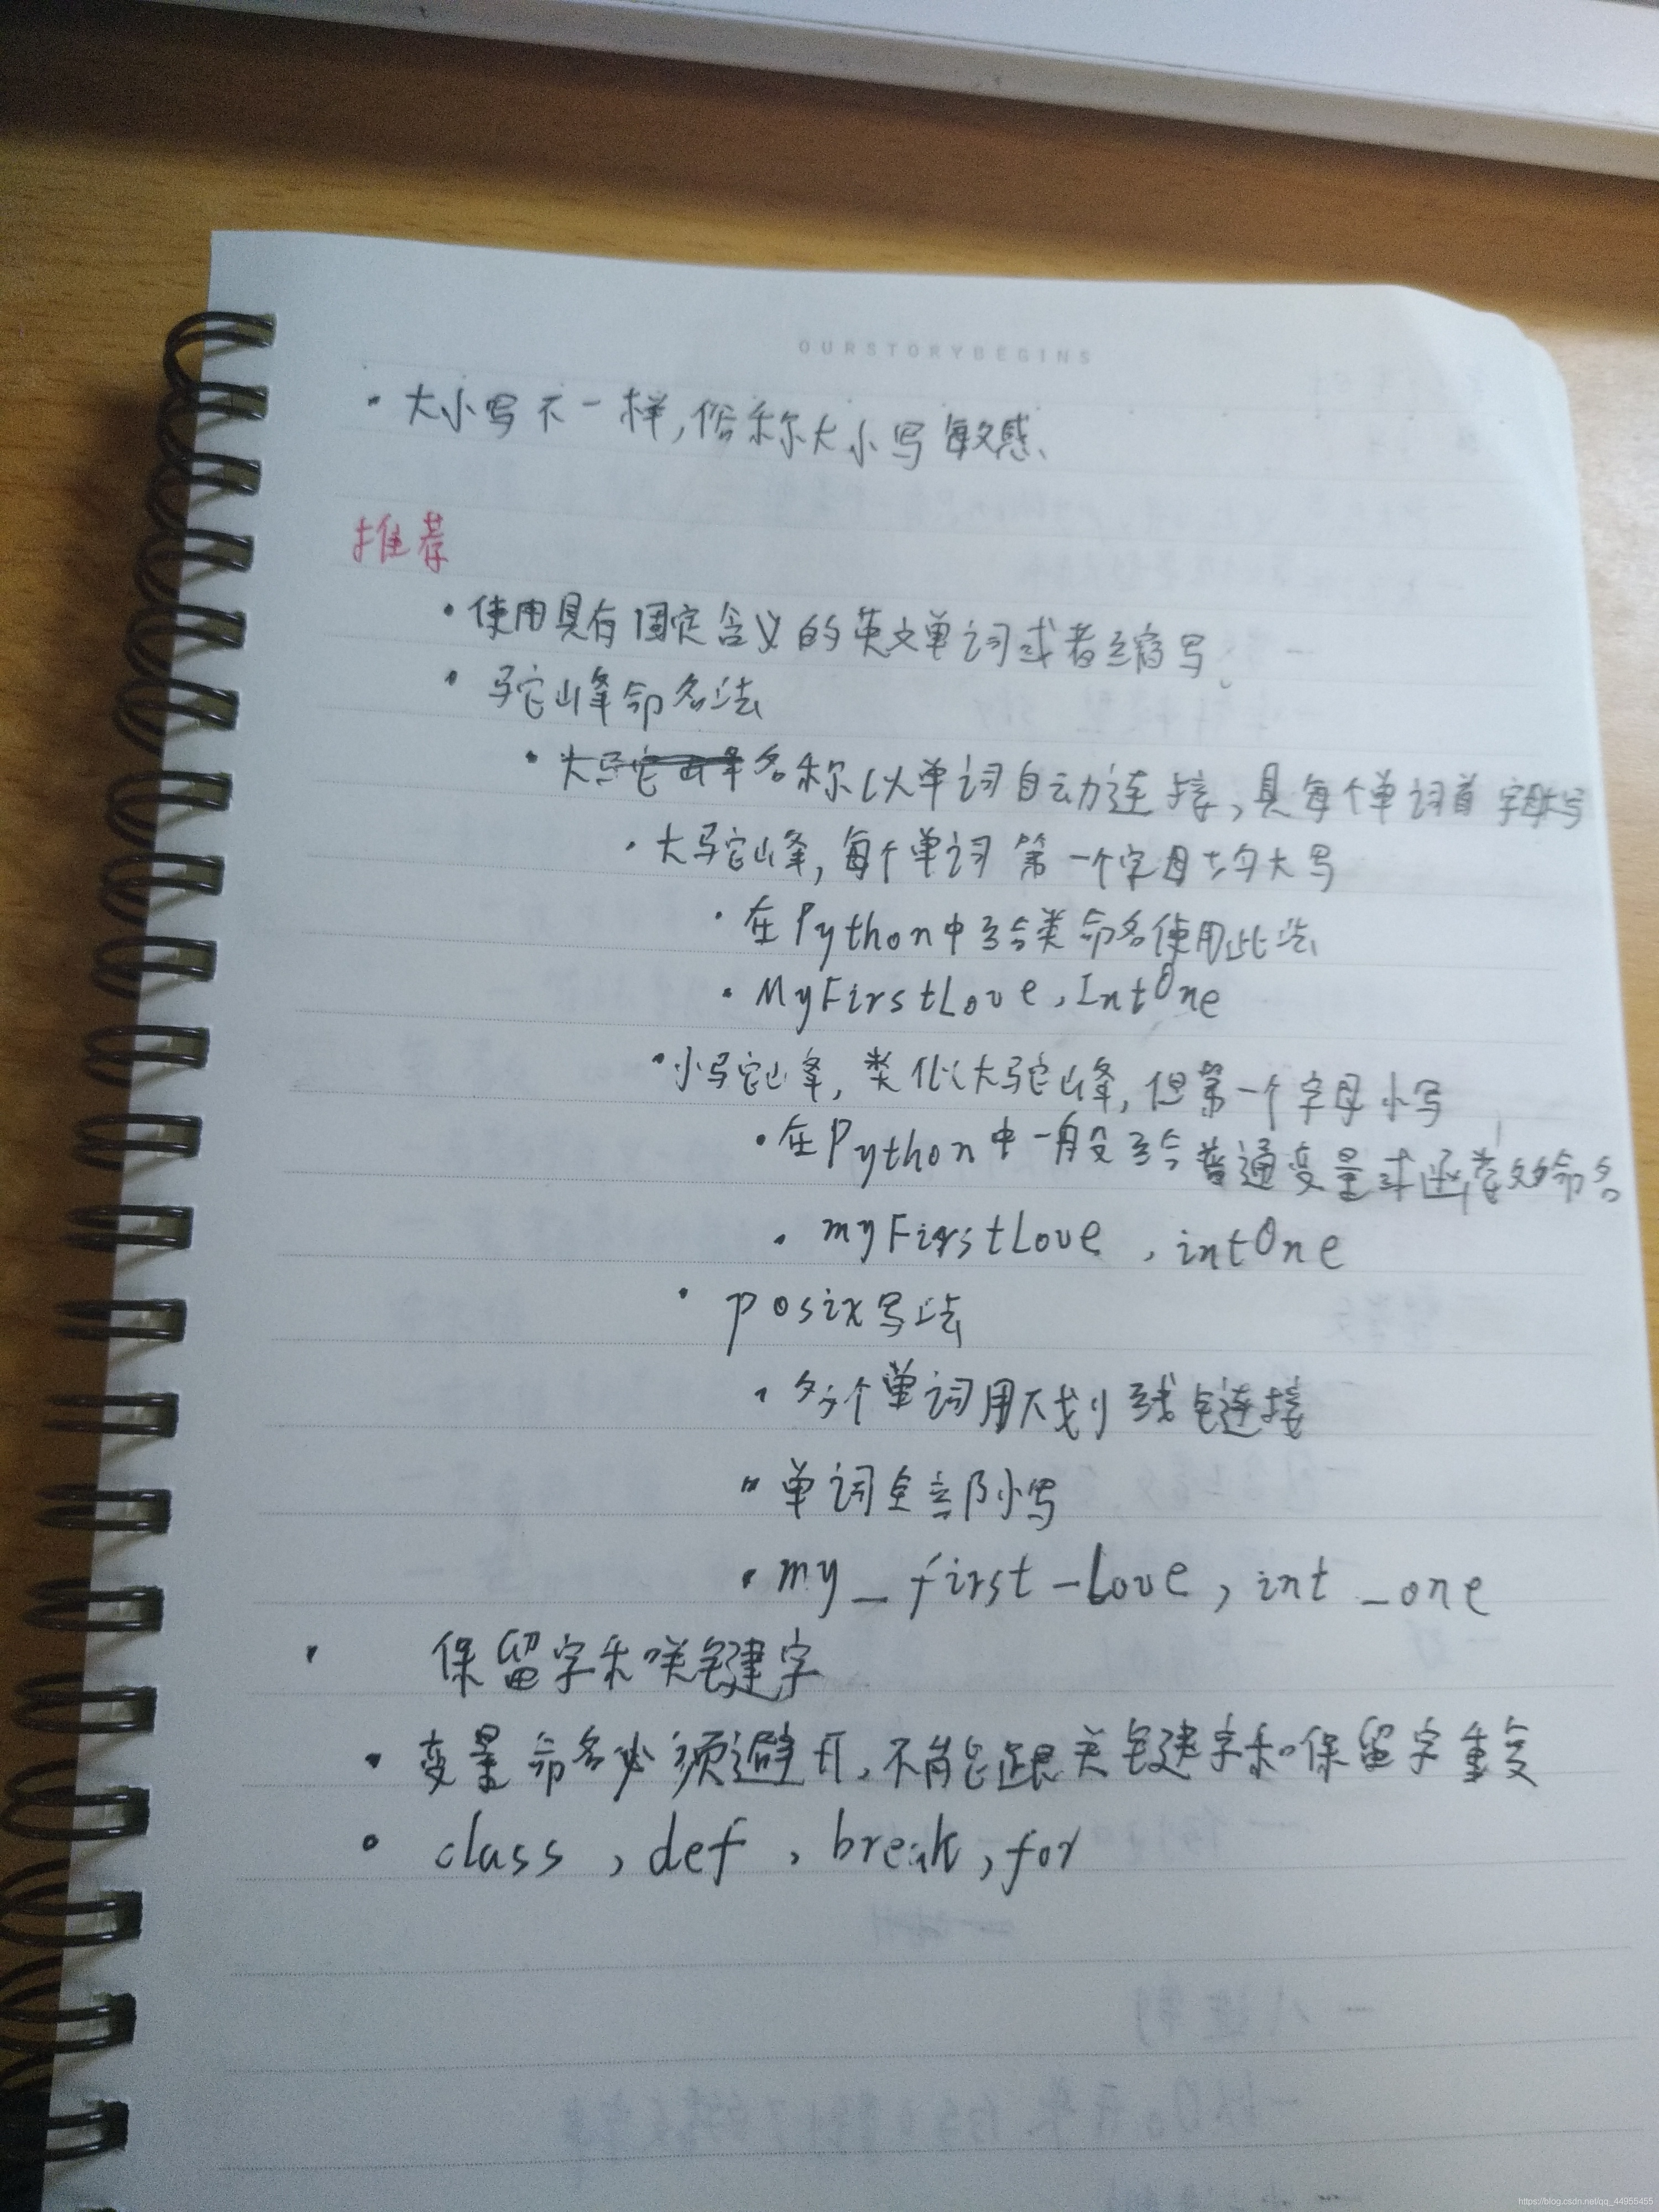 OURSTORYBEGINS
· 大小写不一样,俗称大小写敏感、
推荐
· 使用具有固定含义的英文单词或者缩写。
· 驼峰命名法
· 名称以单词自动连接,具每个单词首字母大写
· 大驼峰,每个单词第一个字母均大写
· 在Python中给类命名使用此法
· MyFirstLove,IntOne
· 小驼峰,类似大驼峰,但第一个字母小写
· 在Python中一般给普通变量或函数命名
· myFirstLove,intOne
· posix写法
· 多个单词用下划线连接
· 单词全部小写
· my_first_Love,int_one
· 保留字和关键字
· 变量命名必须避开,不能跟关键字和保留字重复
· class,def,break,for
https://blog.csdn.net/qq_44955455